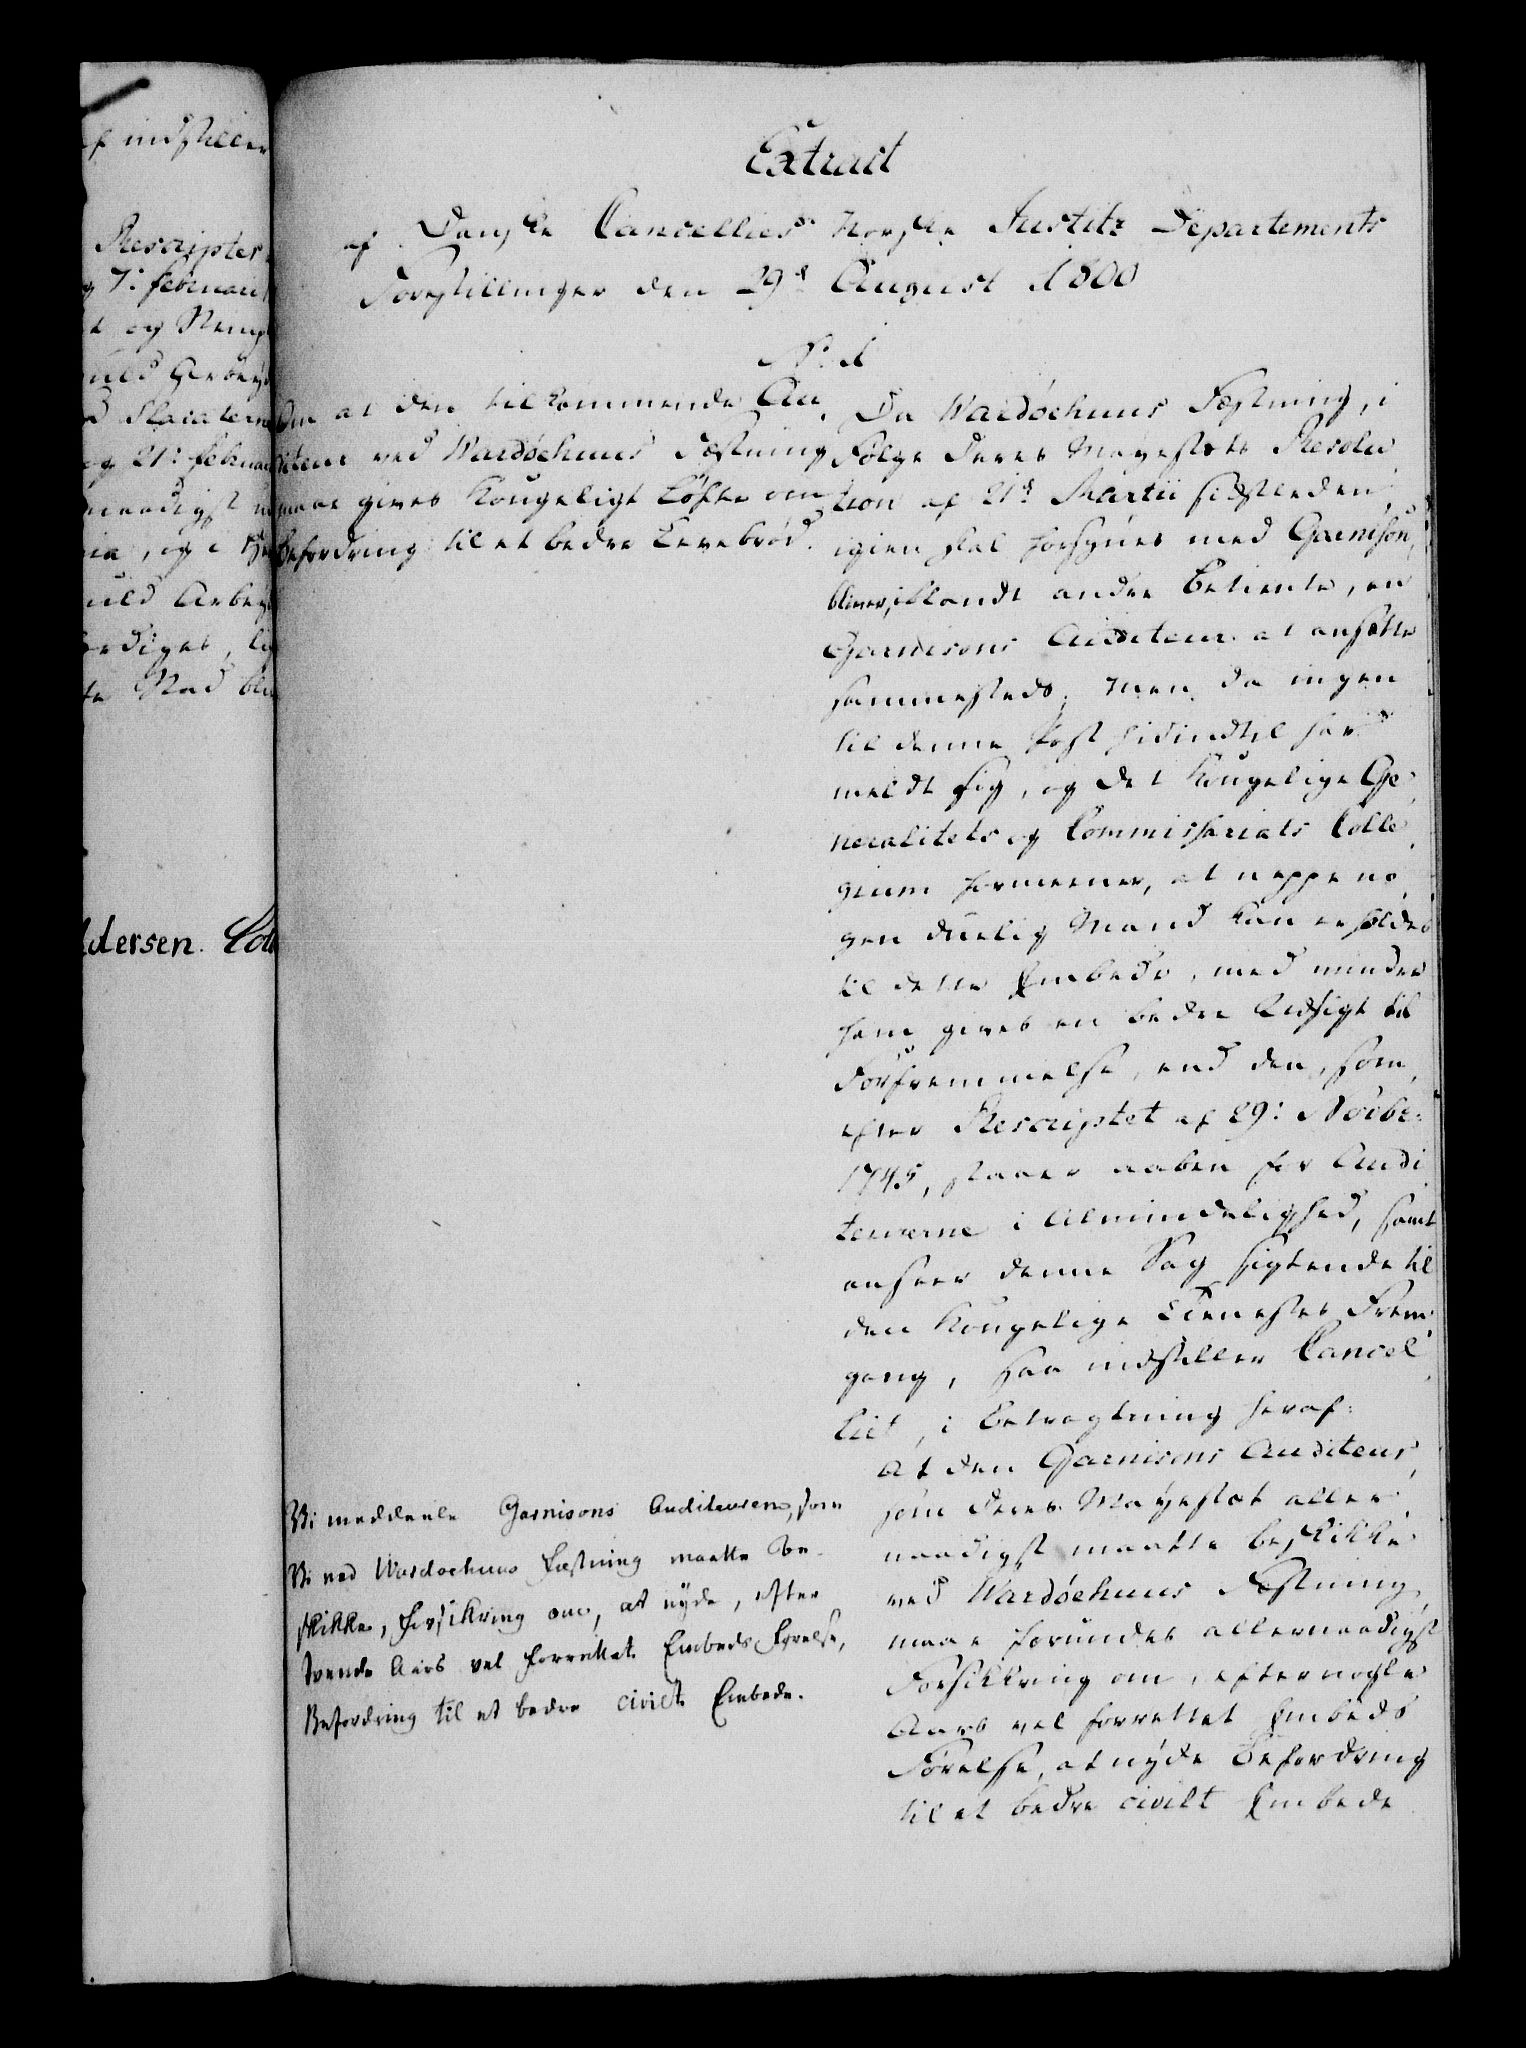 f indstiller
Rescripter
og 7: Februarii
t og Penge
uld Arbeyd
d Placaterne
og 21: Februar
naadigst
ia, og i
uld Arbeyd
lediget,
te Mad
dersen.
Extrait
af Danske Cancellies Norske Justitz Departements
Forestillinger den 29de August 1800
No. 1
Om at den tilkommende Au-
diteur ved Wardøehuus Fæstning
maae gives Kongeligt Løfte om
Befordring til et bedre Levebrød.
Da Wardøehuus Fæstning, i
Følge Deres Mayestæts Resolu-
tion af 21de Martii sidstleden,
igien skal forsynes med Garnison,
bliver, iblandt andre Betiente, en
Garnisons Auditeur at ansætte
sammesteds; men da ingen
til denne Post hidindtil har
meldt sig, og det Kongelige Ge-
neralitets og Commissariats Colle-
gium formeener, at neppe no-
gen duelig Mand kan erholdes
til dette Embede, med mindre
ham gives en bedre Udsigt til
Forfremmelse, end den, som
efter Rescriptet af 29: Novbr:
1745, staaer aaben for Audi-
teurerne i Almindelighed, samt
anseer denne Sag sigtende til
den Kongelige Tienestes Frem-
gang, saa indstiller Cancel-
liet, i Betragtning heraf:
At den Garnisons Auditeur,
som Deres Mayestæt aller-
naadigst maatte beskikke
ved Wardøehuus Fæstning,
maae forundes allernaadigst
Forsikkring om, efter nogle
Aars vel forrettet Embeds
Førelse, at nyde Befordring
til et bedre civilt Embede
Vi meddeele Garnisons Auditeuren, som
Vi ved Wardoehuus Fæstning maatte be-
skikke, Forsikring om, at nyde, efter
tvende Aars vel forrettet Embeds Førelse,
Befordring til et bedre civilt Embede.